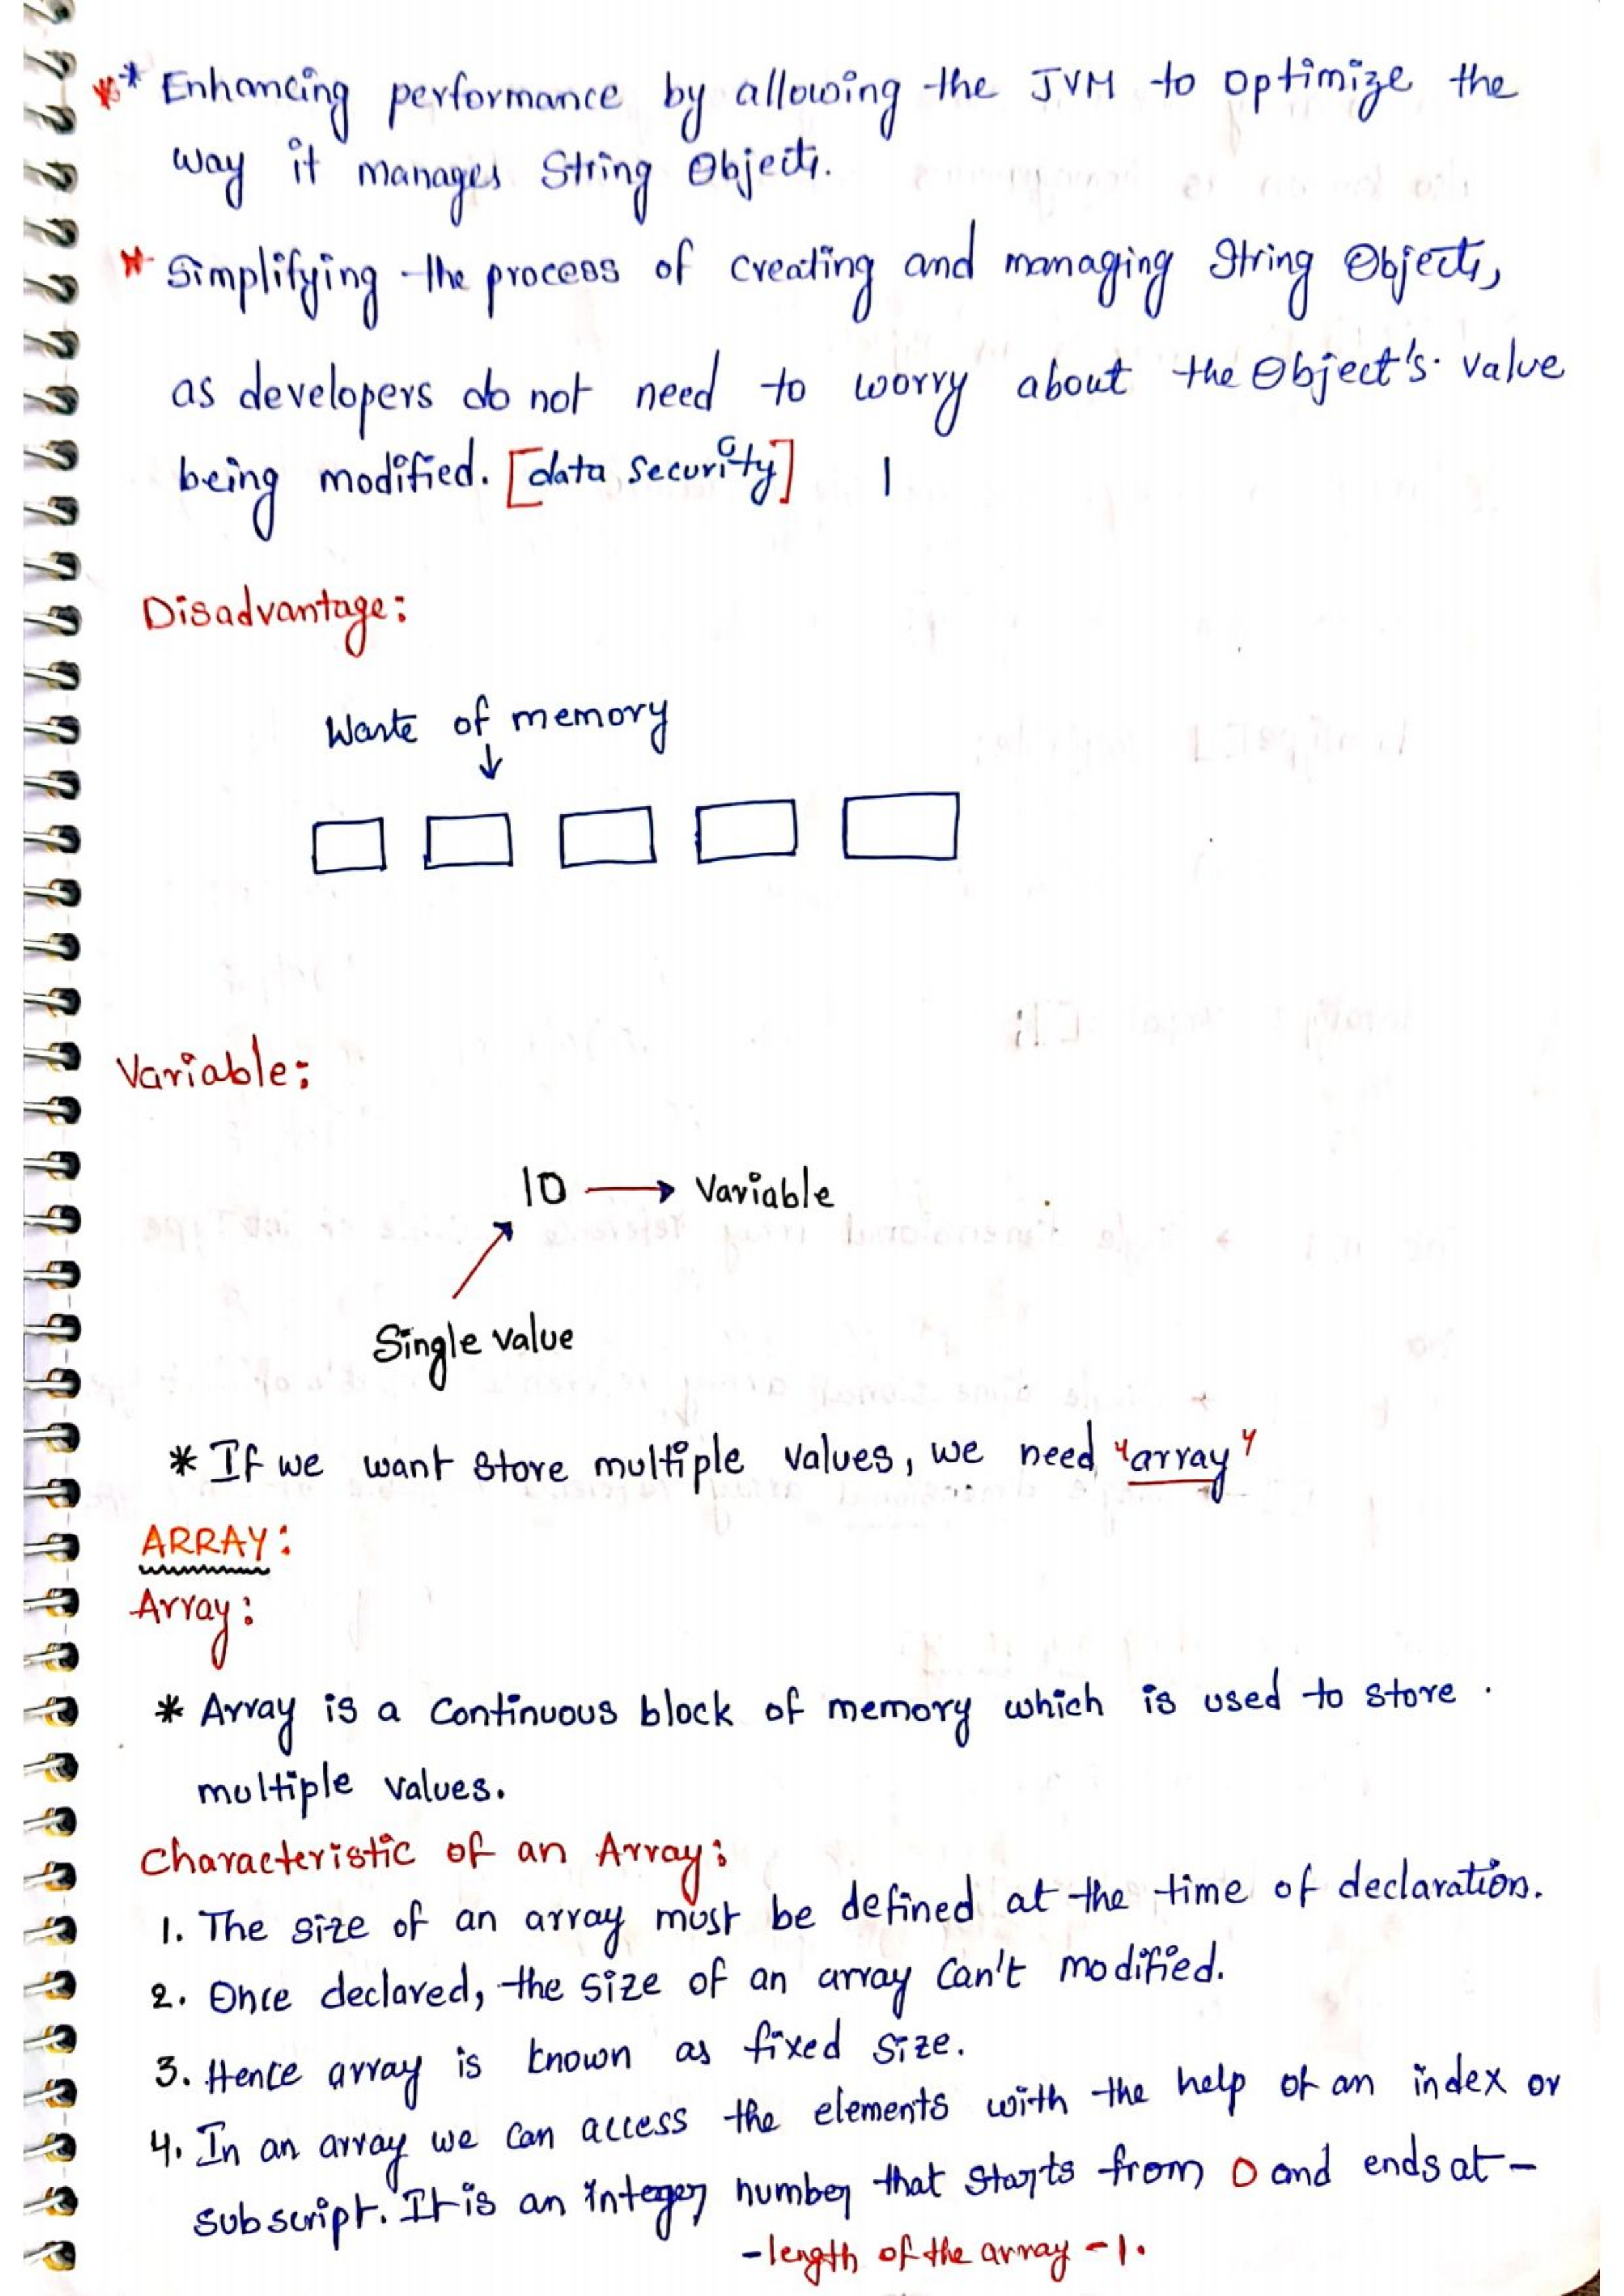 ** Enhancing performance by allowing the JVM to optimize the
way it manages String Objects.
* Simplifying the process of creating and managing String Objects,
as developers do not need to worry about the Object's value
being modified. [data security]
Disadvantage:
Waste of memory
Variable:
10 → Variable
Single value
* If we want store multiple values, we need "array"
ARRAY:
Array:
* Array is a continuous block of memory which is used to store
multiple values.
Characteristic of an Array:
1. The size of an array must be defined at the time of declaration.
2. Once declared, the size of an array can't modified.
3. Hence array is known as fixed size.
4. In an array we can access the elements with the help of an index or
subscript. It is an integer number that starts from 0 and ends at -
- length of the array - 1.